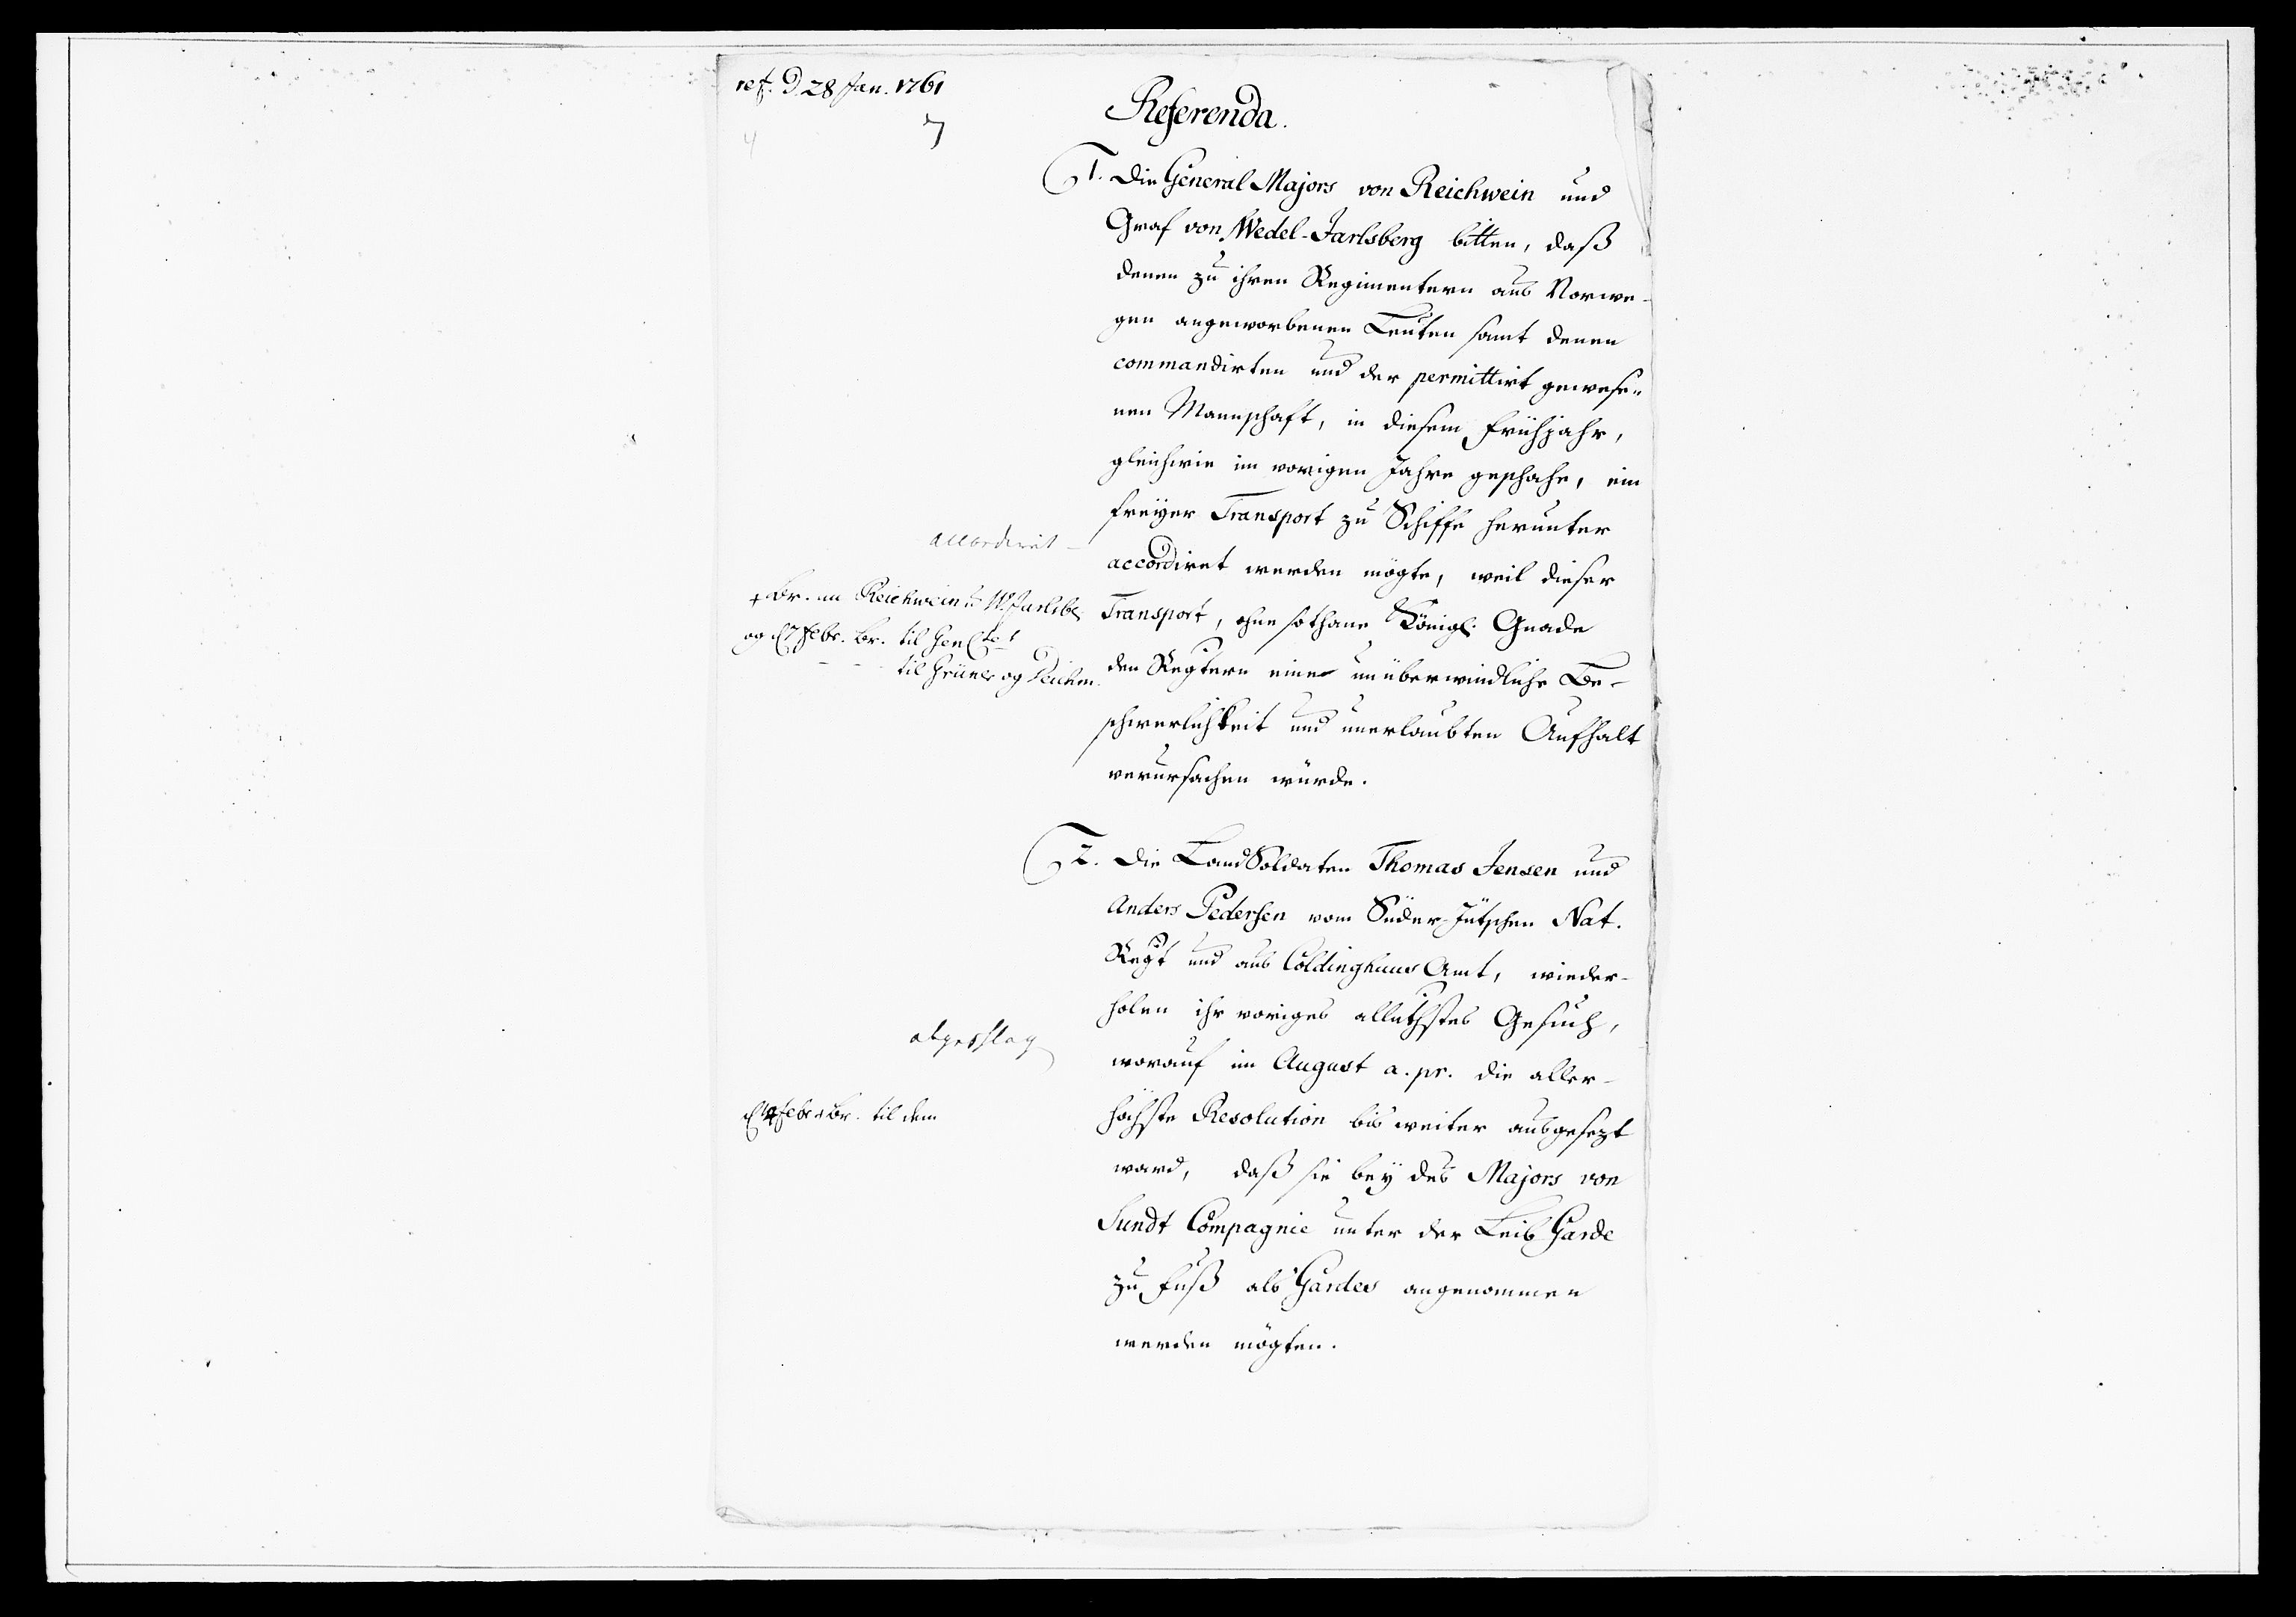 ref. D 28 Jan. 1761
7
4
Referenda.
1. Die General Majors von Reichwein und
Graf von Wedel-Jarlsberg bitten, daß
denen zu ihren Regimentern aus Norwe-
gen angeworbenen Leuten samt denen
commandirten und der permittirt gewese-
nen Mannschaft, in diesem Frühjahr,
gleichwie im vorigen Jahre geschahe, ein
freÿer Transport zu Schiffe herunter
accordiret werden mögte, weil dieser
Transport, ohne sothane Königl. Gnade
den Regtern eine unüberwindliche Be-
schwerlichkeit und unerlaubten Aufhalt
verursachen würde.
accordiret
+ Br. an Reichwein u W. Jarlsb.
og d 7 Febr. Br. til Gen
til Grüner og Deichm.
2. Die LandSoldaten Thomas Jensen und
Anders Pedersen vom Süder-Jütschen Nat.
Regt und aus Coldinghuus Amt, wieder-
holen ihr voriges alluthstes Gesuch,
worauf im August a. pr. die aller-
höchste Resolution bis weiter ausgesezt
ward, daß sie beÿ des Majors von
Sundt Compagnie unter der Leib Garde
zu Fuß als Gardes angenommen
werden mögten.
abgeschlag
Febr Br. til dem